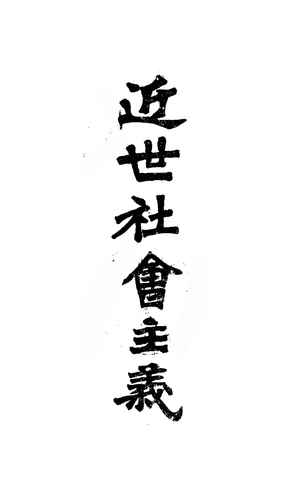 近世社會主義